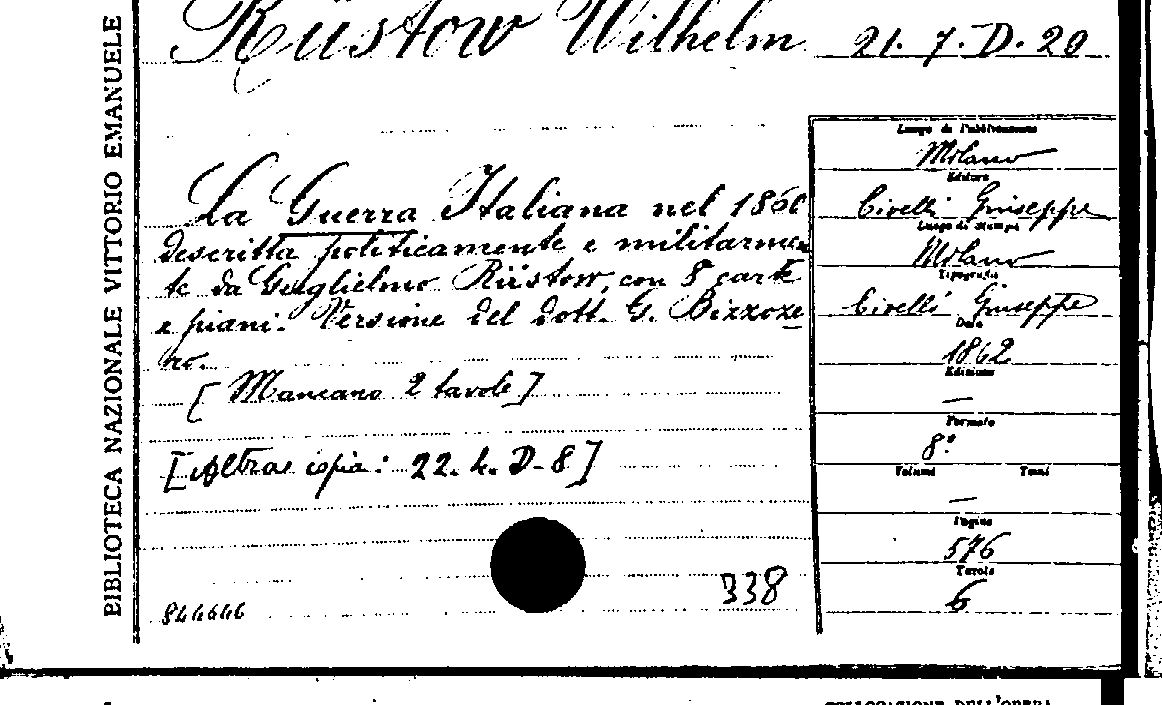 BIBLIOTECA NAZIONALE VITTORIO EMANUELE
Rüstow Wilhelm
21. 7. D. 20
La Guerra Italiana nel 1860
descritta politicamente e militarmen
te da Guglielmo Rüstow, con 8 carte
e piani. Versione del dott. G. Bizzoze
ro.
[Mancano 2 tavole]
[Altra copia: 22. 4. D-8]
338
844646
Luogo di Pubblicazione
Milano
Editore
Civelli Giuseppe
Luogo di Stampa
Milano
Tipografia
Civelli Giuseppe
Data
1862
Edizione
—
Formato
8°
Volumi Tomi
—
Pagine
576
Tavole
6
COLLOCAZIONE DELL'OPERA